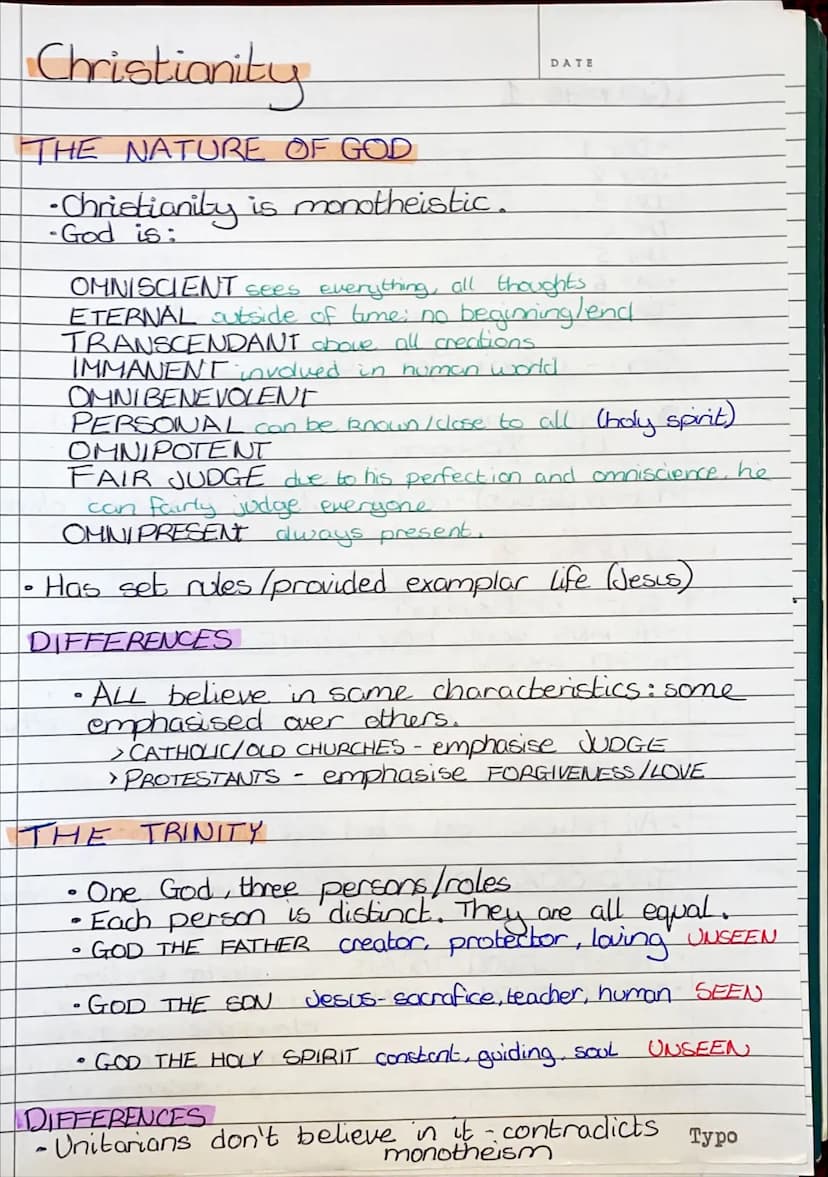 Christianity
DATE
THE NATURE OF GOD
• Christianity is monotheistic.
• God is:
OMNISCIENT sees everything, all thoughts
ETERNAL outside of time: no beginning/end
TRANSCENDANT above all creations
IMMANENT involved in human world
OMNIBENEVOLENT
PERSONAL can be known/close to all (holy spirit)
OMNIPOTENT
FAIR JUDGE due to his perfection and omniscience, he
can fairly judge everyone
OMNIPRESENT always present.
• Has set rules/provided examplar life (Jesus)
DIFFERENCES
• ALL believe in same characteristics: some
emphasised over others.
> CATHOLIC/OLD CHURCHES - emphasise JUDGE
> PROTESTANTS - emphasise FORGIVENESS/LOVE
THE TRINITY
• One God, three persons/roles
• Each person is distinct. They are all equal.
• GOD THE FATHER creator, protector, loving UNSEEN
• GOD THE SON Jesus - sacrafice, teacher, human SEEN
• GOD THE HOLY SPIRIT constant, guiding, soul UNSEEN
DIFFERENCES
- Unitarians don't believe in it - contradicts
monotheism
Typo